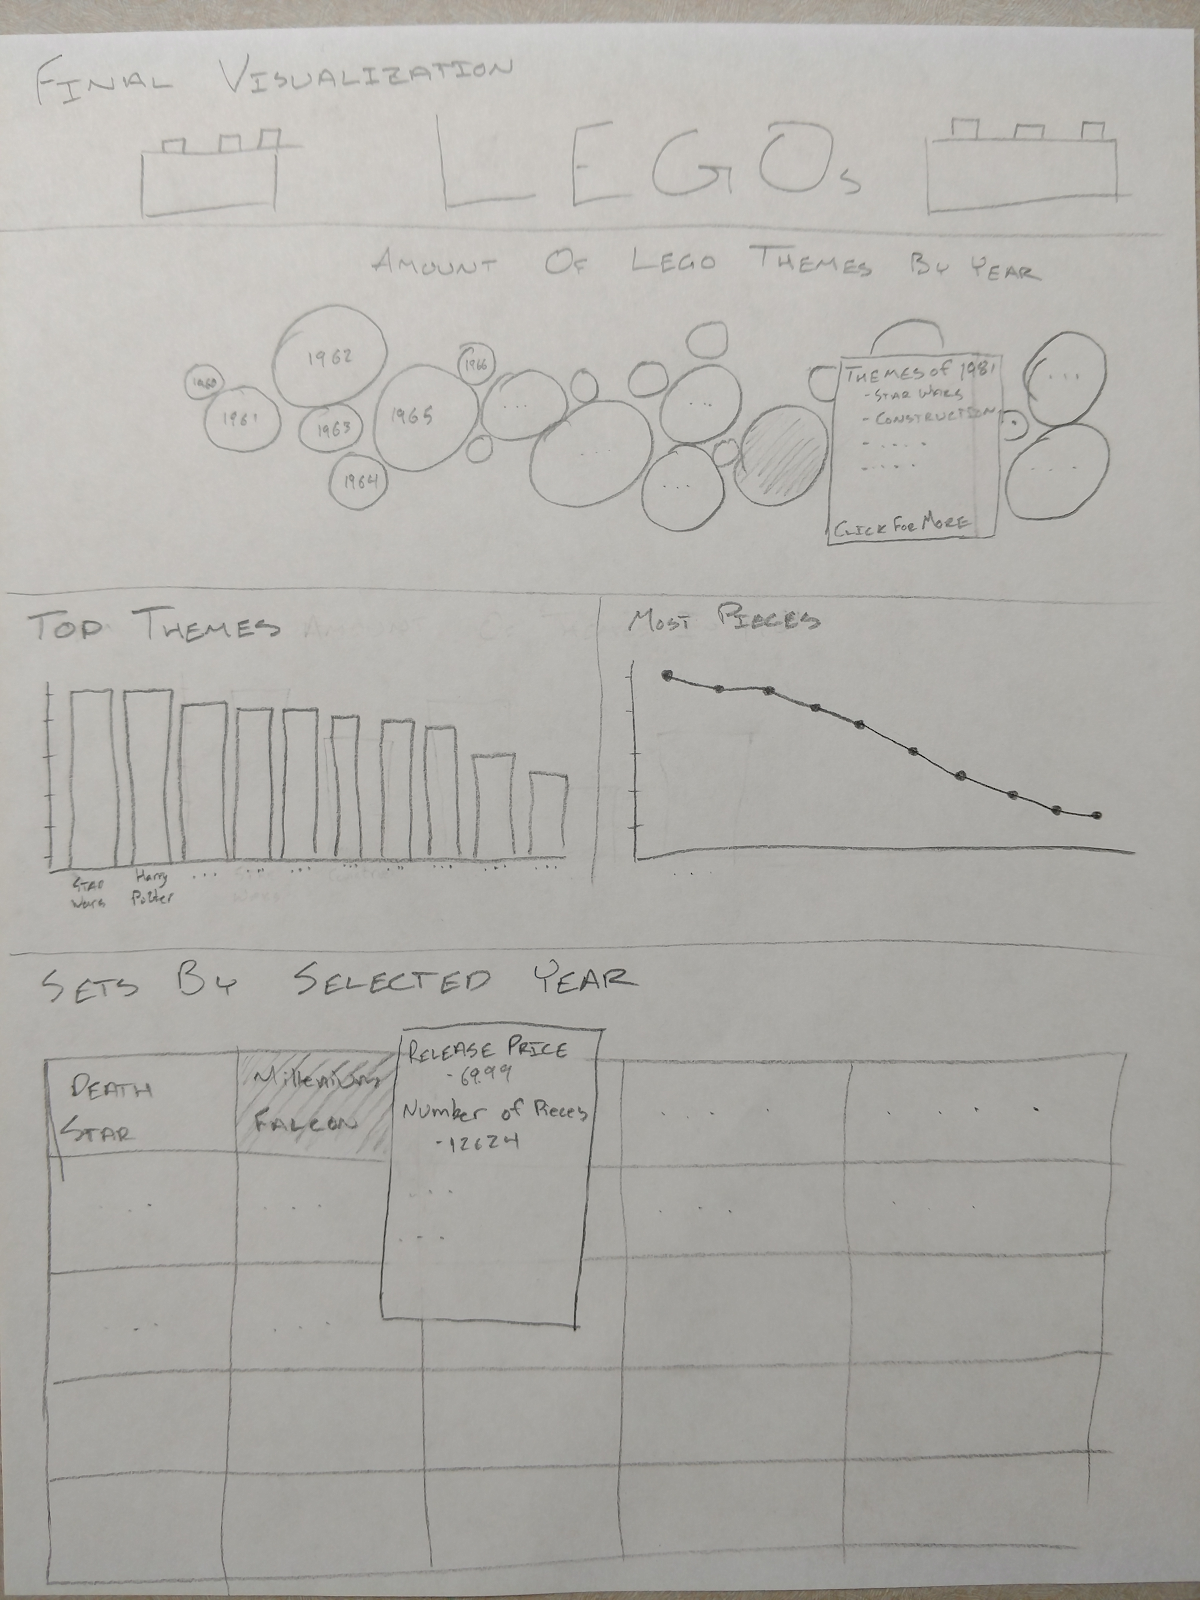 FINAL VISUALIZATION
LEGOs
AMOUNT OF LEGO THEMES BY YEAR
1960
1961
1962
1963
1964
1965
1966
...
...
...
...
THEMES of 1981
- STAR WARS
- CONSTRUCTION
- ....
- ....
CLICK FOR MORE
...
...
TOP THEMES
STAR
Wars
Harry
Potter
... ... ... ... ... ... ... ...
MOST PIECES
...
SETS BY SELECTED YEAR
DEATH
STAR
Millenium
FALCON
RELEASE PRICE
- 69.99
Number of Pieces
- 12624
...
...
.... ....
... ... ... ...
... ...